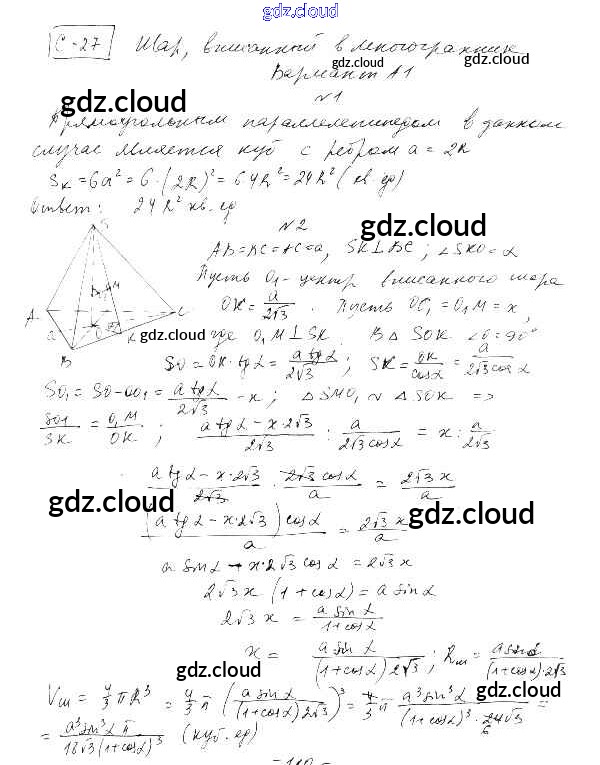 gdz.cloud
С-27 Шар, вписанный в многогранник
Вариант А1
№1
gdz.cloud
gdz.cloud
Прямоугольным параллелепипедом в данном
случае является куб с ребром a = 2R
Sк = 6a² = 6 · (2R)² = 6·4R² = 24R² (кв. ед)
Ответ: 24R² кв. ед
gdz.cloud
№2
AB=BC=AC=a, SK⊥BC; ∠SKO=α
Пусть O₁ - центр вписанного шара
OK = a/2√3. Пусть OO₁ = O₁M = x,
gdz.cloud
где O₁M⊥SK. В △SOK ∠O=90°
SO = OK·tgα = a tgα/2√3; SK = OK/cosα = a/2√3 cosα
SO₁ = SO-OO₁ = a tgα/2√3 - x; △SMO₁ ~ △SOK =>
SO₁/SK = O₁M/OK; a tgα - x·2√3/2√3 : a/2√3 cosα = x : a/2√3
gdz.cloud
gdz.cloud
a tgα - x·2√3/2√3 · 2√3 cosα/a = 2√3 x/a
gdz.cloud
gdz.cloud
(a tgα - x·2√3) cosα/a = 2√3 x/a
a sinα - x·2√3 cosα = 2√3 x
2√3 x (1+cosα) = a sinα
2√3 x = a sinα/1+cosα
gdz.cloud
gdz.cloud
x = a sinα/(1+cosα) 2√3; Rш = a sinα/(1+cosα)·2√3
gdz.cloud
gdz.cloud
Vш = 4/3 πR³ = 4/3 π (a sinα/(1+cosα) 2√3)³ = 4/3 π a³ sin³α/(1+cosα)³·24√3 =
6
= a³ sin³α π/18√3 (1+cosα)³ (куб. ед)
gdz.cloud